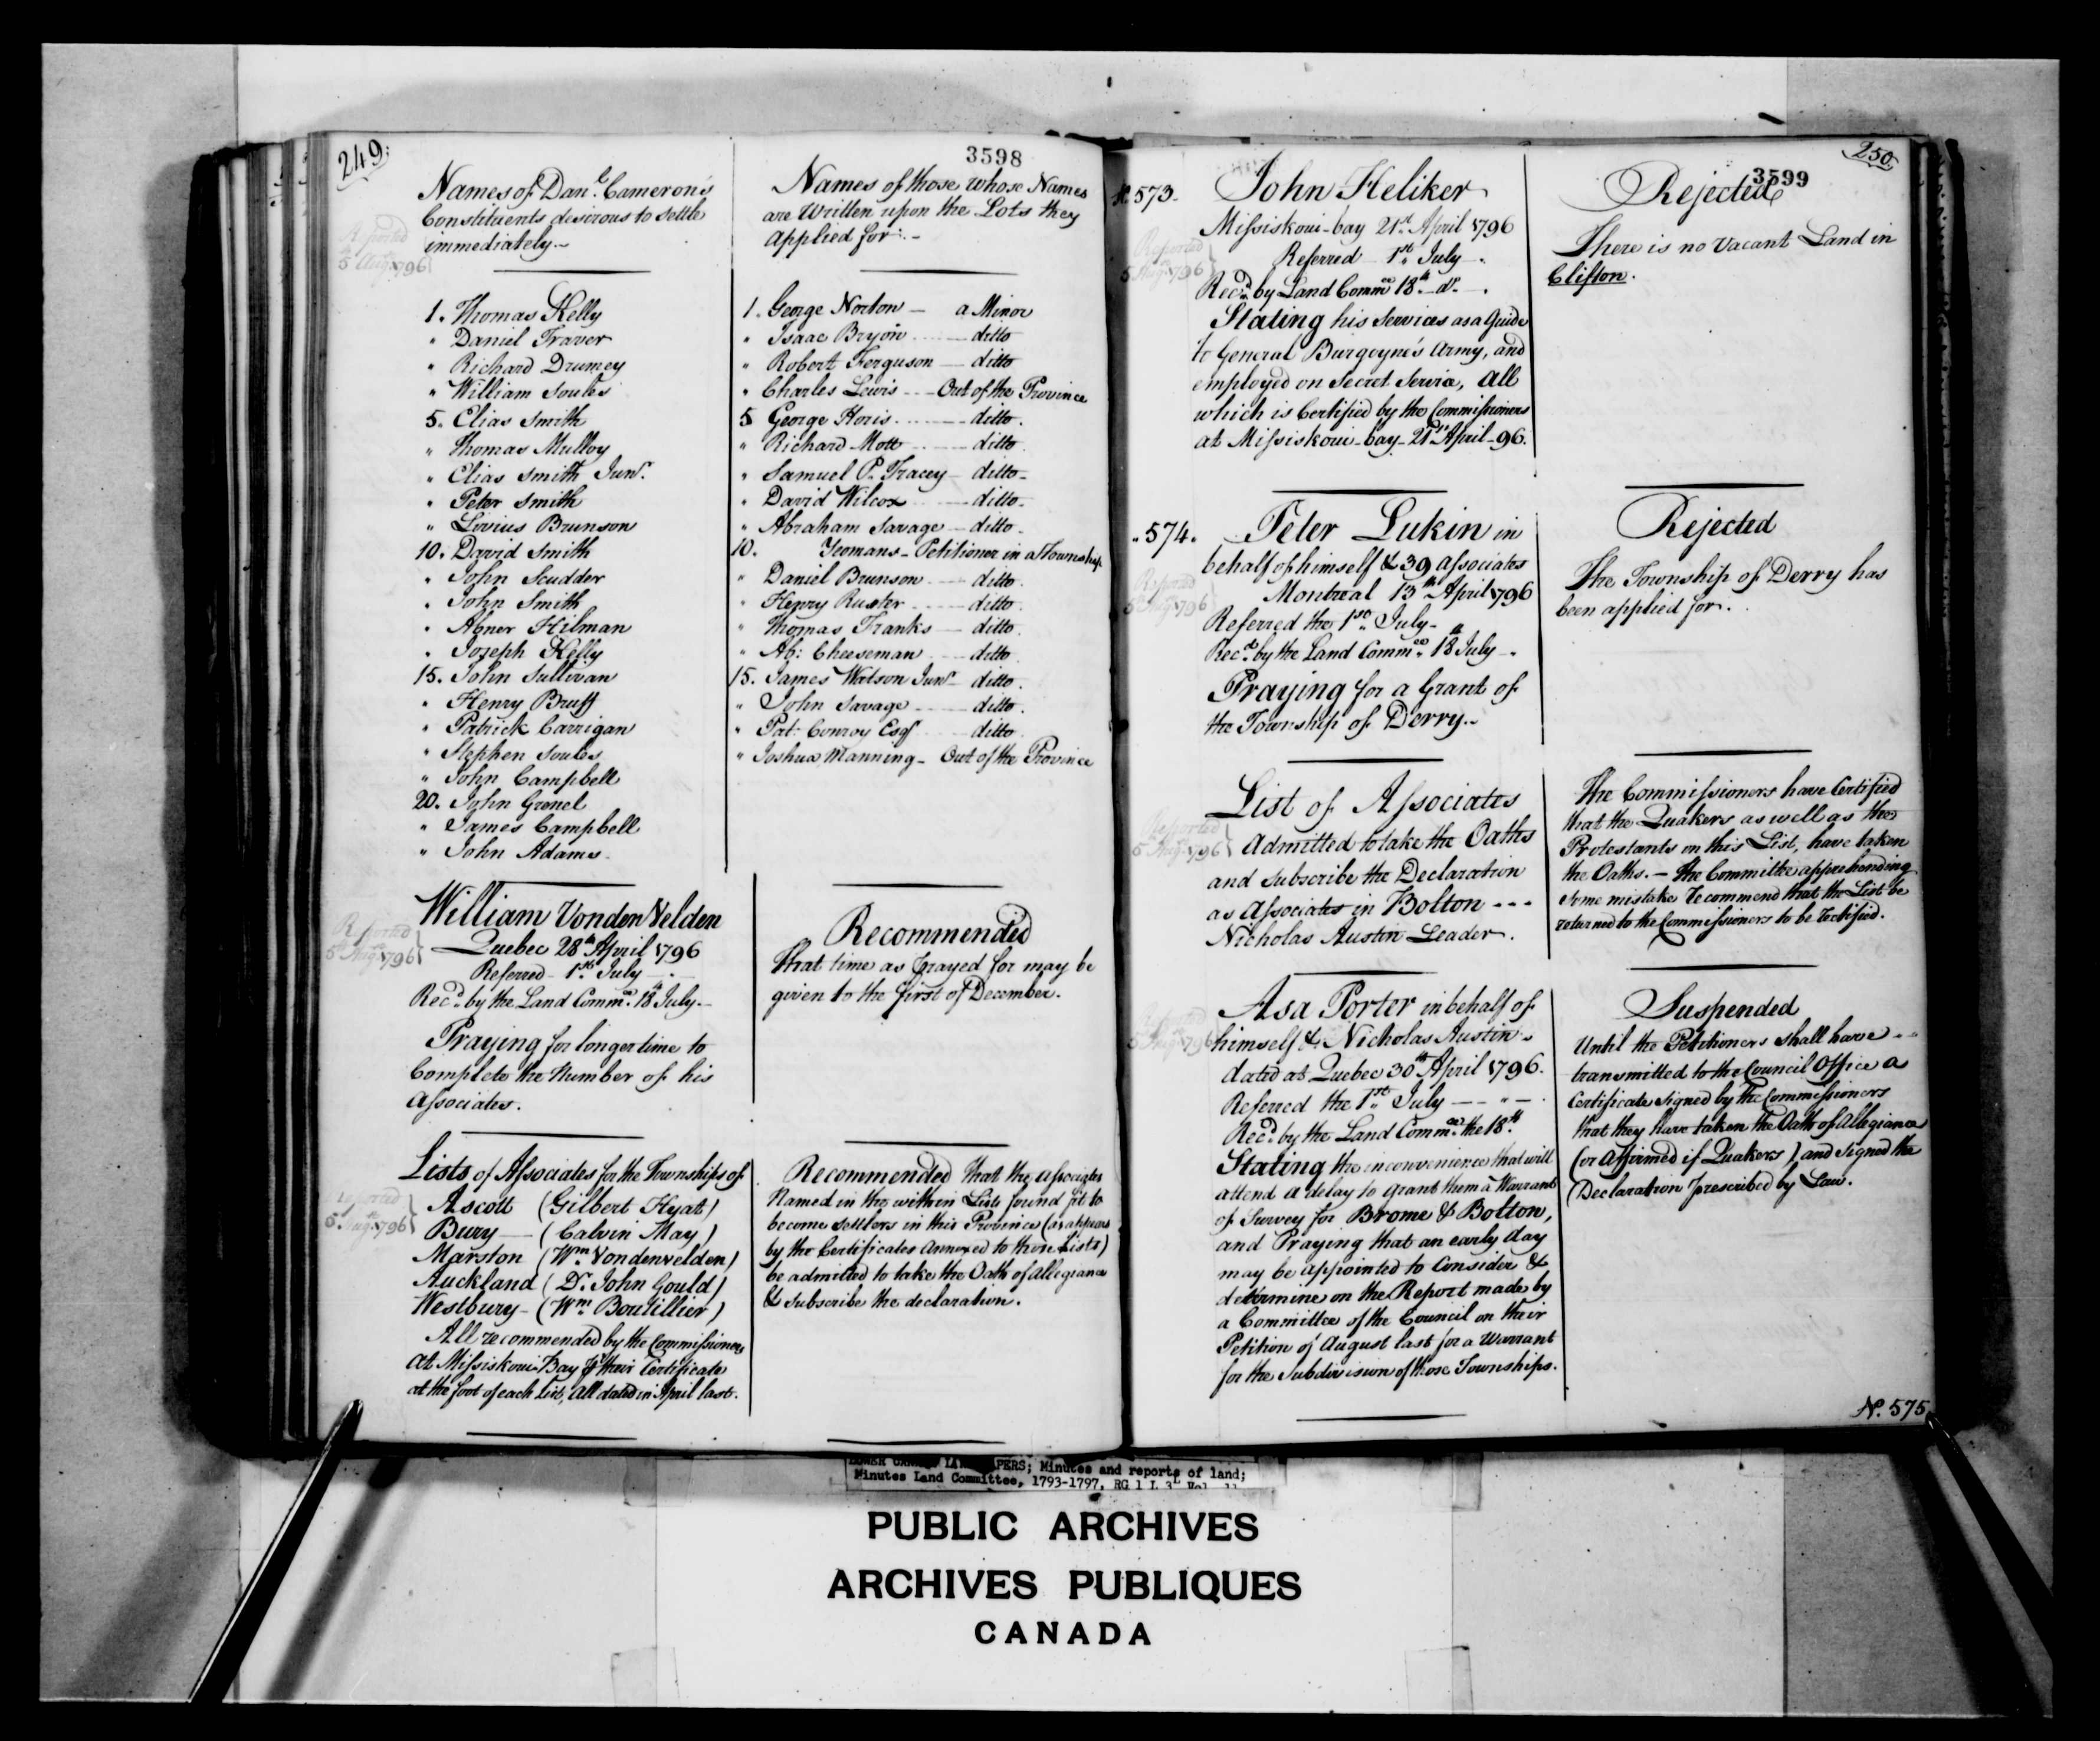 249.
3598
Names of Dan.l Cameron's
Constituents desirous to settle
immediately.-
Reported
5 Aug. 1796
1. Thomas Kelly
" Daniel Traver
" Richard Drumey
" William Soules
5. Elias Smith
" Thomas Mulloy
" Elias Smith Junr.
" Peter Smith
" Livius Brunson
10. David Smith
" John Scudder
" John Smith
" Abner Hilman
" Joseph Kelly
15. John Sullivan
" Henry Bruff
" Patrick Carrigan
" Stephen Soules
" John Campbell
20. John Grenel
" James Campbell
" John Adams.
Names of those whose Names
are Written upon the Lots they
Applied for:-
1. George Norton - a Minor
" Isaac Bryon ---- ditto
" Robert Ferguson - ditto
" Charles Lewis --- Out of the Province
5 George Horis ---- ditto.
" Richard Mott --- ditto.
" Samuel P. Tracey - ditto-
" David Wilcox ---- ditto-
" Abraham Savage - ditto-
10. Yeomans - Petitioner in a Township
" Daniel Brunson --- ditto.
" Henry Ruster ---- ditto.
" Thomas Franks - ditto.
" Ab: Cheeseman --- ditto.
15. James Watson Junr - ditto.
" John Savage ---- ditto.
" Pat: Conroy Esqr ditto.
" Joshua Manning - Out of the Province
Reported
5th Aug. 1796
William Vonden Velden
Quebec 28th April 1796
Referred - 1st July -.
Recd. by the Land Commee. 18th July.-
Praying for longer time to
Complete the Number of his
Associates.
Recommended
That time as Prayed for may be
given to the first of December.
Reported
5 Aug. 1796
Lists of Associates for the Townships of
Ascott (Gilbert Hyat)
Bury - (Calvin May)
Marston (Wm. Vondenvelden)
Auckland (Dr. John Gould)
Westbury - (Wm. Boutillier)
All recommended by the Commissioners
at Missiskoui Bay pr their Certificate
at the foot of each List, All dated in April last.
Recommended that the Associates
Named in the within Lists found fit to
become settlers in this Province (as appears
by the Certificates Annexed to those Lists)
be admitted to take the Oath of Allegiance
& subscribe the declaration.
250
3599
N. 573.
John Heliker
Missiskoui-bay 21st April 1796
Referred 1st July -.
Recd. by Land Commee 18th do -.
Reported
5 Aug. 1796
Stating his Services as a Guide
to General Burgoyne's Army, and
employed on Secret Service, All
which is Certified by the Commissioners
at Missiskoui-bay - 21st April - 96.
Rejected
There is no Vacant Land in
Clifton.
" 574.
Peter Lukin in
behalf of himself & 39 Associates
Montreal 13th April 1796
Referred the 1st July -
Recd. by the Land Commee. 18 July -.
Reported
5 Aug. 1796
Praying for a Grant of
the Township of Derry.-
Rejected
The Township of Derry has
been applied for.
Reported
5 Aug. 1796
List of Associates
Admitted to take the Oaths
and subscribe the Declaration
as Associates in Bolton ---
Nicholas Austin Leader.
The Commissioners have Certified
that the Quakers as well as the
Protestants in this List, have taken
the Oaths. - The Committee apprehending
some mistake Recommend that the List be
returned to the Commissioners to be rectified.
5 Aug. 1796
Asa Porter in behalf of
himself & Nicholas Austin -
dated at Quebec 30th April 1796.
Referred the 1st July -- " -
Recd. by the Land Commee. the 18th.
Stating the inconvenience that will
attend a delay to grant them a Warrant
of Survey for Brome & Bolton,
and Praying that an early day
may be appointed to Consider &
determine on the Report made by
a Committee of the Council on their
Petition of August last for a Warrant
for the Subdivision of those Townships.
Suspended
Until the Petitioners shall have --
transmitted to the Council Office a
Certificate signed by the Commissioners
that they have taken the Oath of Allegiance
(or Affirmed if Quakers) and Signed the
Declaration prescribed by Law.
N. 575
LOWER CANADA LAND PAPERS; Minutes and reports of land;
Minutes Land Committee, 1793-1797, RG 1 L 3L Vol. 11
PUBLIC ARCHIVES
ARCHIVES PUBLIQUES
CANADA